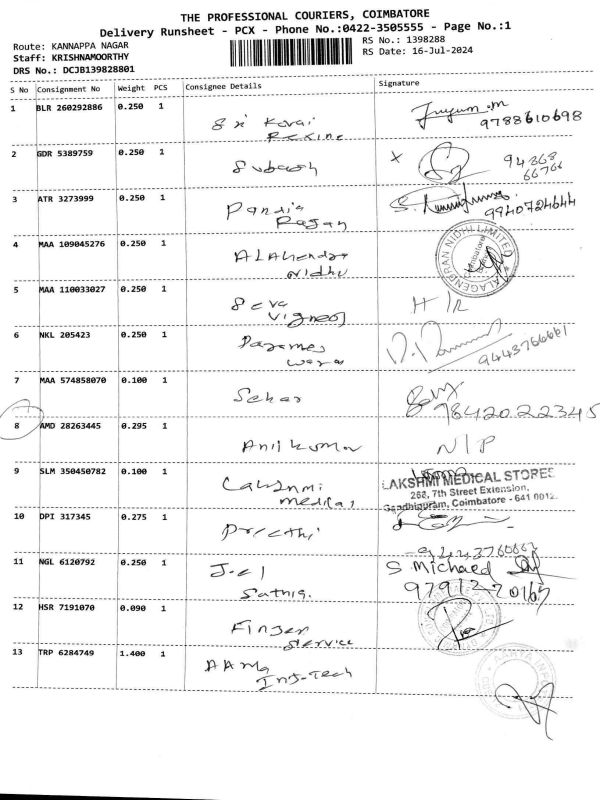 THE PROFESSIONAL COURIERS, COIMBATORE
Delivery Runsheet - PCX - Phone No.:0422-3505555 - Page No.:1
Route: KANNAPPA NAGAR
RS No.: 1398288
Staff: KRISHNAMOORTHY
RS Date: 16-Jul-2024
DRS No.: DCJB139828801
S No Consignment No Weight PCS Consignee Details Signature
1 BLR 260292886 0.250 1 Sri Kovai
9788610698
2 GDR 5389759 0.250 1 Subash X 94868
66766
3 ATR 3273999 0.250 1 Pandia
Rajan 9940724644
4 MAA 109045276 0.250 1
Nidhi ALAGENDRAN NIDHI LIMITED
5 MAA 110033027 0.250 1 Seva
Vignesh H/R
6 NKL 205423 0.250 1
9443766661
7 MAA 574858070 0.100 1 Sekar
9842022345
8 AMD 28263445 0.295 1 Anilkumar N/P
9 SLM 350450782 0.100 1 LAKSHMI MEDICAL STORES
268, 7th Street Extension,
Gandhipuram, Coimbatore - 641 012.
10 DPI 317345 0.275 1 Preethi
11 NGL 6120792 0.250 1 S. Michael
12 HSR 7191070 0.090 1 Finger
Service
13 TRP 6284749 1.400 1